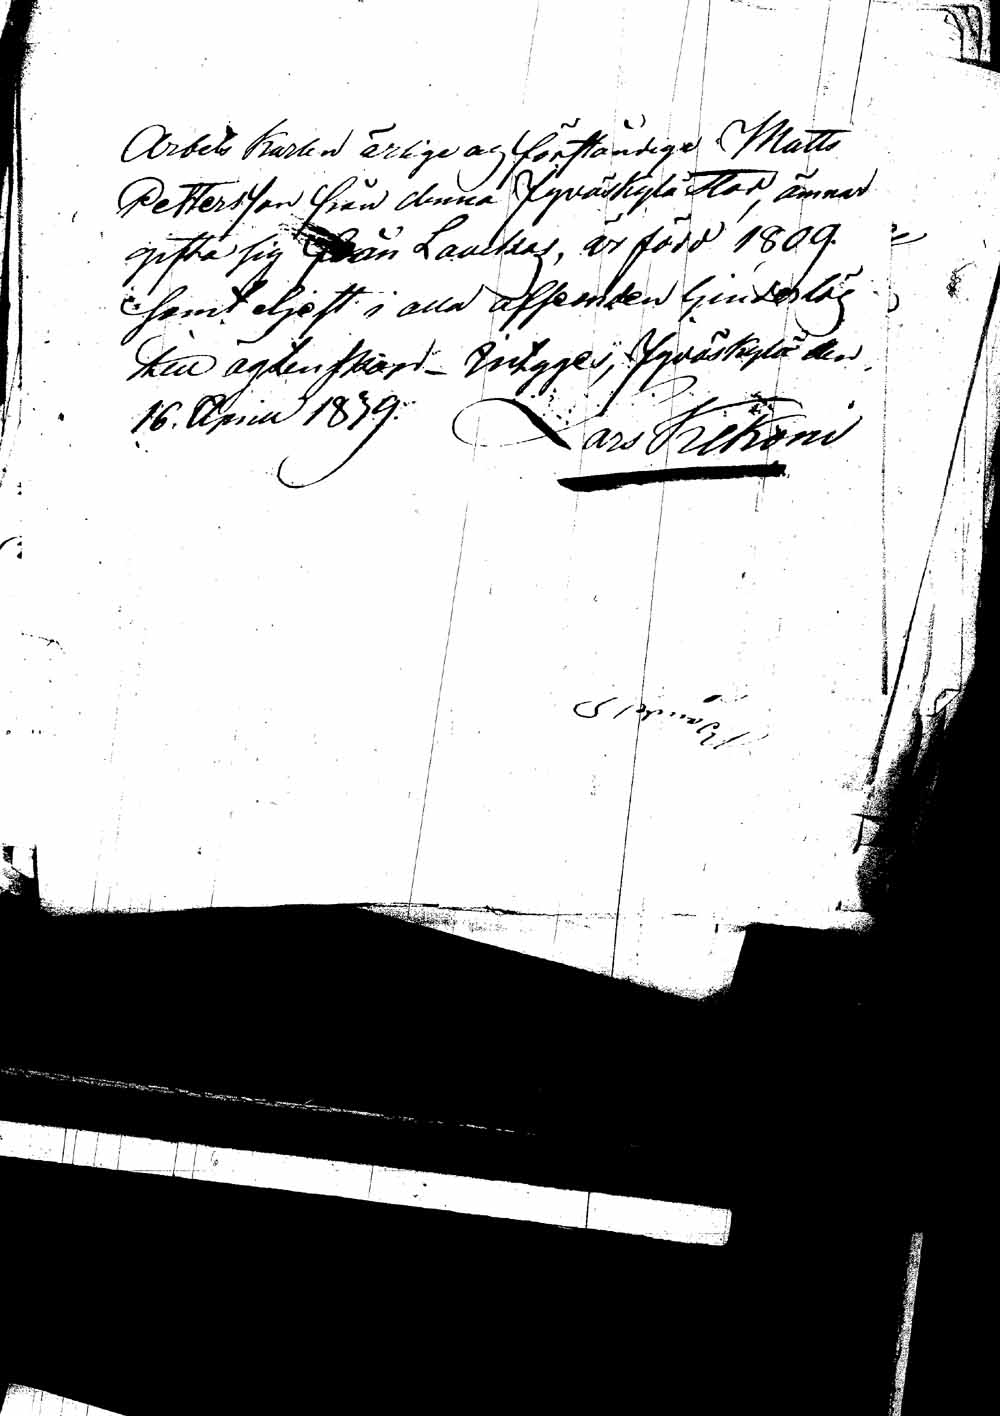 Arbets Karlen ärlige og förståndige Matts
Pettersson från denna Jyväskylä Stad, ämnar
gifta sig från Laukas, är född 1809.
samt i alla afseenden hinderslös
till ägtenskap - intygges, Jyväskylä den
16. April 1839. Lars Kekoni